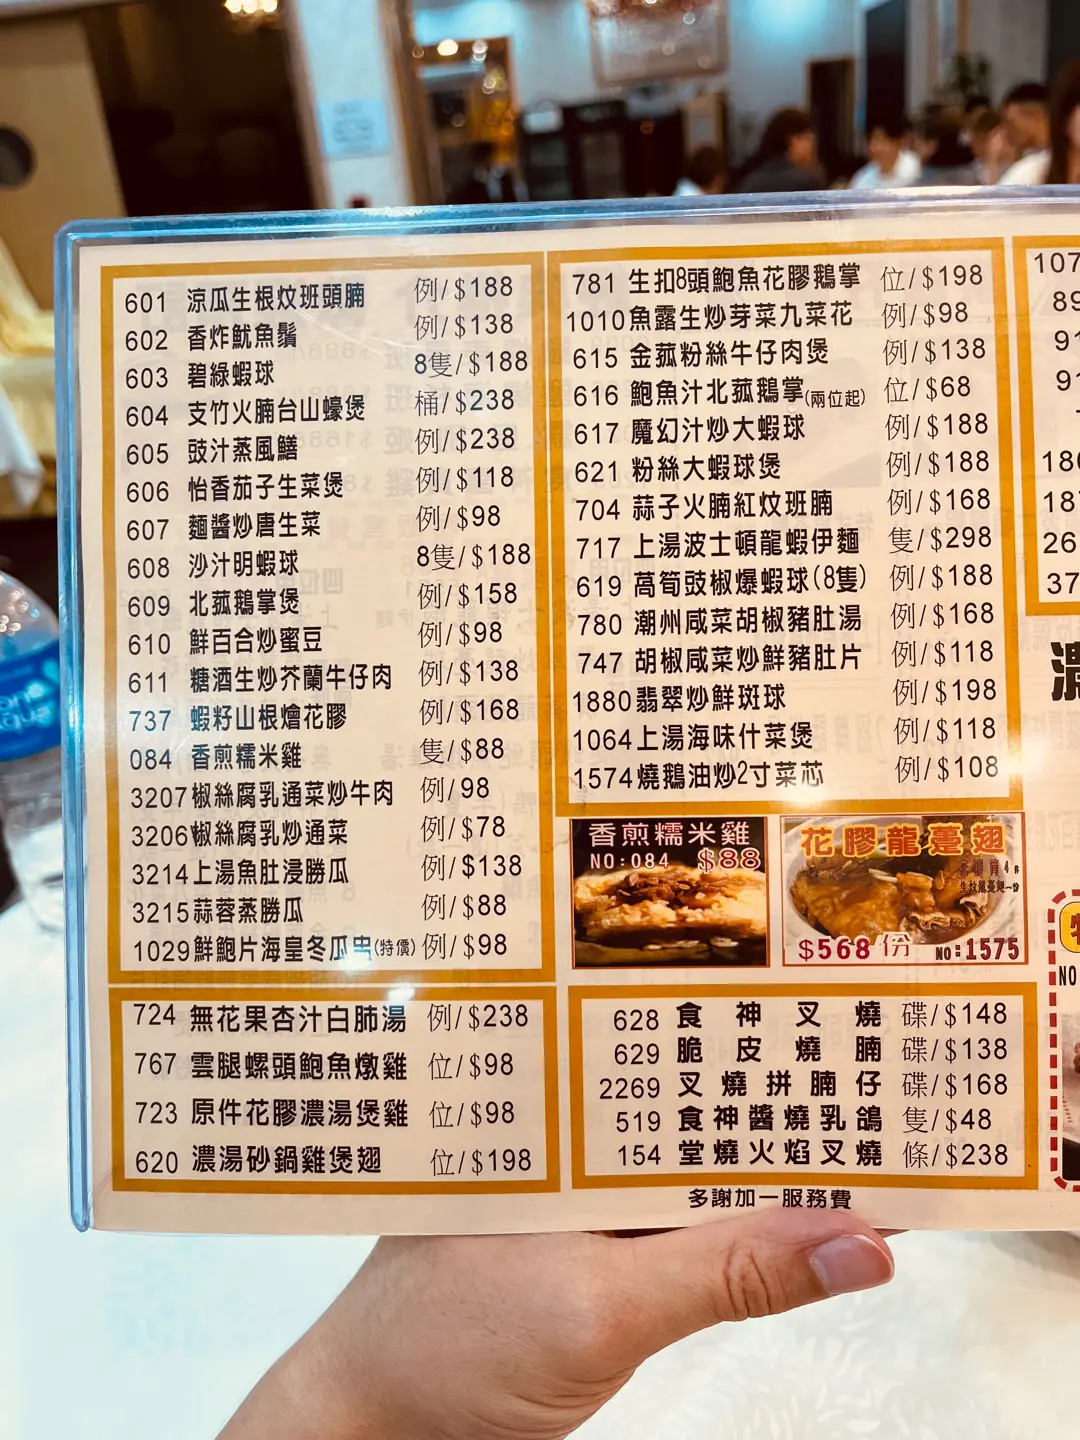 601 涼瓜生根炆班頭腩 例/$188
602 香炸魷魚鬚 例/$138
603 碧綠蝦球 8隻/$188
604 支竹火腩台山蠔煲 桶/$238
605 豉汁蒸風鱔 例/$238
606 怡香茄子生菜煲 例/$118
607 麵醬炒唐生菜 例/$98
608 沙汁明蝦球 8隻/$188
609 北菰鵝掌煲 例/$158
610 鮮百合炒蜜豆 例/$98
611 糖酒生炒芥蘭牛仔肉 例/$138
737 蝦籽山根燴花膠 例/$168
084 香煎糯米雞 隻/$88
3207 椒絲腐乳通菜炒牛肉 例/98
3206 椒絲腐乳炒通菜 例/$78
3214 上湯魚肚浸勝瓜 例/$138
3215 蒜蓉蒸勝瓜 例/$88
1029 鮮鮑片海皇冬瓜 (特價) 例/$98
724 無花果杏汁白肺湯 例/$238
767 雲腿螺頭鮑魚燉雞 位/$98
723 原件花膠濃湯煲雞 位/$98
620 濃湯砂鍋雞煲翅 位/$198
781 生扣8頭鮑魚花膠鵝掌 位/$198
1010 魚露生炒芽菜九菜花 例/$98
615 金菰粉絲牛仔肉煲 例/$138
616 鮑魚汁北菰鵝掌(兩位起) 位/$68
617 魔幻汁炒大蝦球 例/$188
621 粉絲大蝦球煲 例/$188
704 蒜子火腩紅炆班腩 例/$168
717 上湯波士頓龍蝦伊麵 隻/$298
619 萵筍豉椒爆蝦球(8隻) 例/$188
780 潮州咸菜胡椒豬肚湯 例/$168
747 胡椒咸菜炒鮮豬肚片 例/$118
1880 翡翠炒鮮斑球 例/$198
1064 上湯海味什菜煲 例/$118
1574 燒鵝油炒2寸菜芯 例/$108
香煎糯米雞
NO:084 $88
花膠龍躉翅
$568 份 NO:1575
628 食神叉燒 碟/$148
629 脆皮燒腩 碟/$138
2269 叉燒拼腩仔 碟/$168
519 食神醬燒乳鴿 隻/$48
154 堂燒火焰叉燒 條/$238
多謝加一服務費
107
89
91
91
180
187
26
37
濃
NO